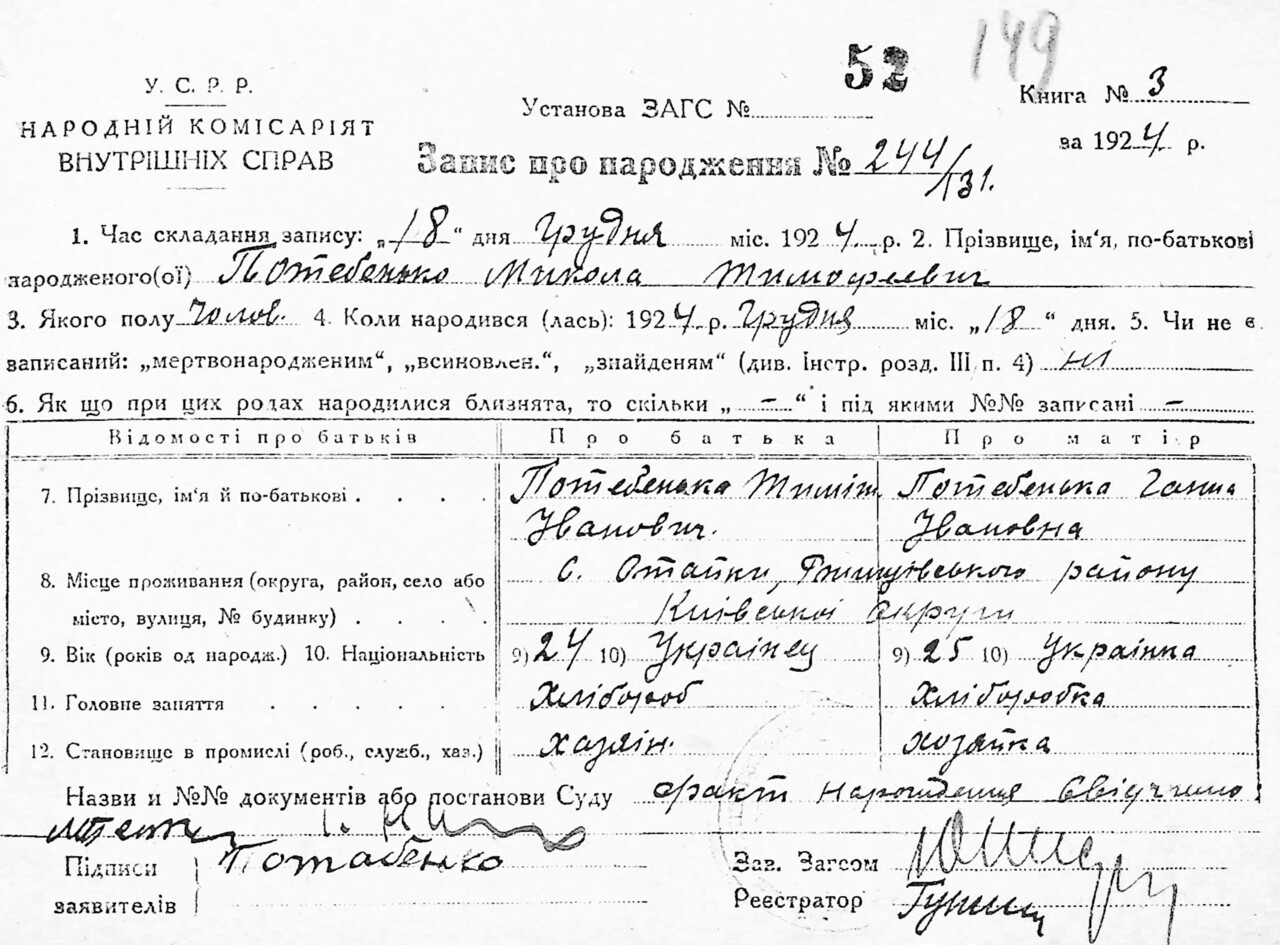 52 149
У. С. Р. Р.
НАРОДНІЙ КОМІСАРІЯТ
ВНУТРІШНІХ СПРАВ
Установа ЗАГС №
Книга № 3
за 1924 р.
Запис про народження № 244/131.
1. Час складання запису: „18“ дня Грудня міс. 1924 р. 2. Прізвище, ім'я, по-батькові
народженого(ої) Потебенько Микола Тимофеевич
3. Якого полу Чолов. 4. Коли народився (лась): 1924 р. Грудня міс. „18“ дня. 5. Чи не є
записаний: „мертвонародженим“, „всиновлен.“, „знайденям“ (див. Інстр. розд. III п. 4) ні
6. Як що при цих родах народилися близнята, то скільки „ – “ і під якими №№ записані –
Відомості про батьків Про батька Про матір
7. Прізвище, ім'я й по-батькові . . . . Потебенька Тиміш Потебенька Ганна
Іванович. Івановна
8. Місце проживання (округа, район, село або с. Стайки, Ржищівського району
місто, вулиця, № будинку) . . . . Київської Округи
9. Вік (років од народж.) 10. Національність 9) 24 10) Українец 9) 25 10) Українка
11. Головне заняття . . . . . . Хлібороб Хліборобка
12. Становище в промислі (роб., служб., хаз.) хазяїн. хозяйка
Назви и №№ документів або постанови Суду факт нарождения свідчино:
Підписи Потабенко
заявителів
Зав. Загсом
Реєстратор